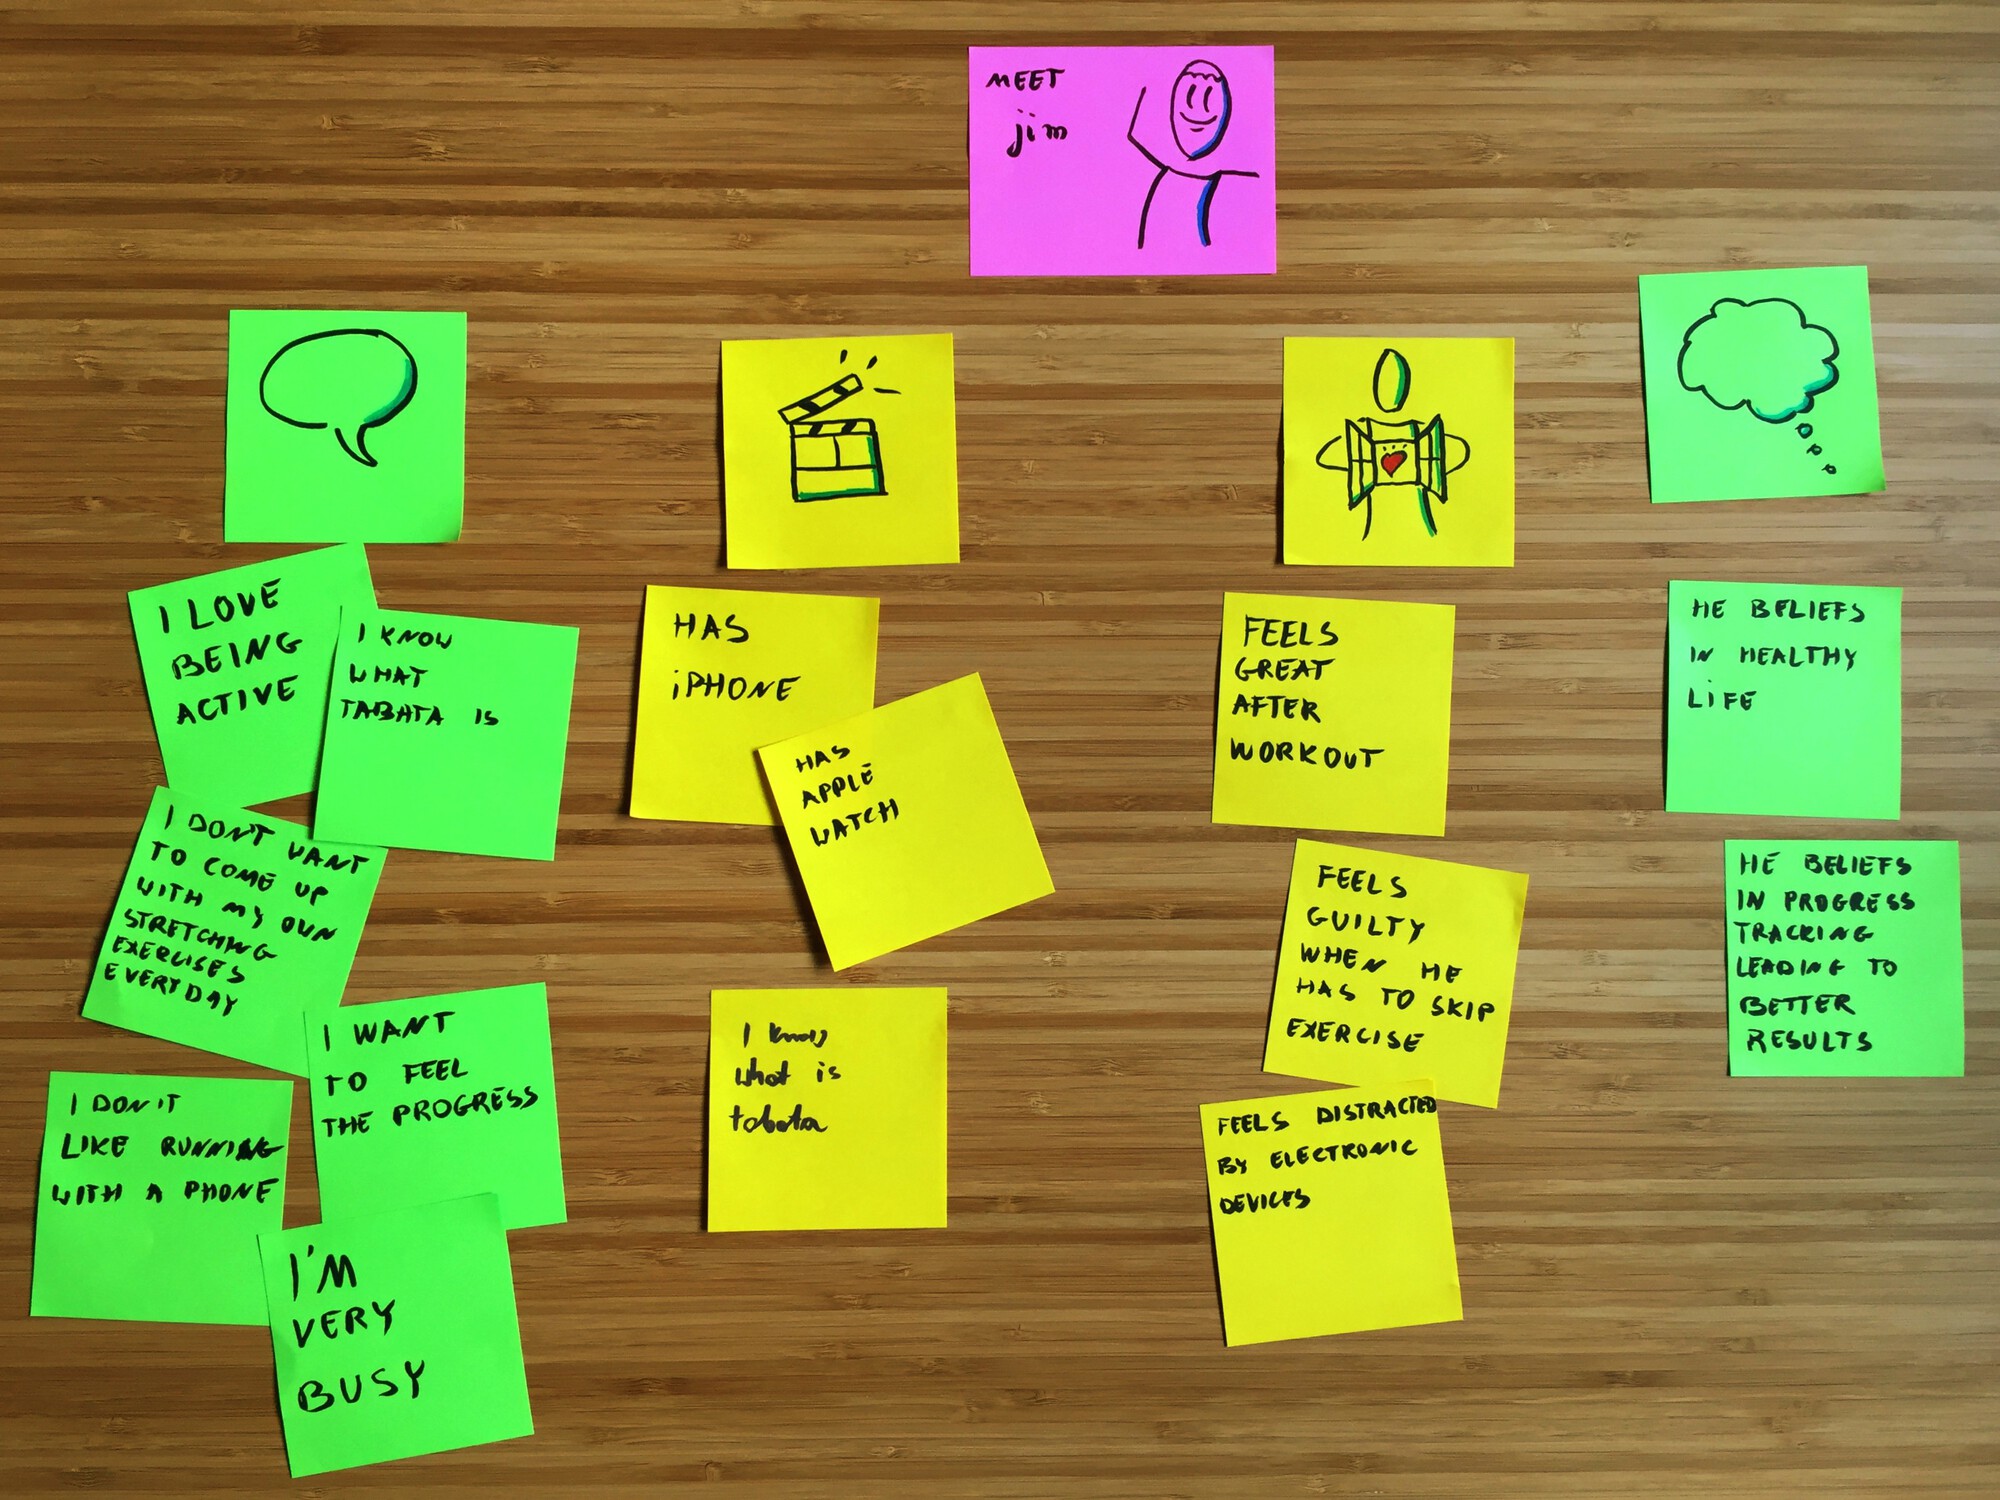 MEET
jim
I LOVE
BEING
ACTIVE
I KNOW
WHAT
TABATA IS
I DON'T WANT
TO COME UP
WITH MY OWN
STRETCHING
EXERCISES
EVERYDAY
I WANT
TO FEEL
THE PROGRESS
I DON'T
LIKE RUNNING
WITH A PHONE
I'M
VERY
BUSY
HAS
iPHONE
HAS
APPLE
WATCH
I know
what is
tabata
FEELS
GREAT
AFTER
WORKOUT
FEELS
GUILTY
WHEN HE
HAS TO SKIP
EXERCISE
FEELS DISTRACTED
BY ELECTRONIC
DEVICES
HE BELIEFS
IN HEALTHY
LiFE
HE BELIEFS
IN PROGRESS
TRACKING
LEADING TO
BETTER
RESULTS